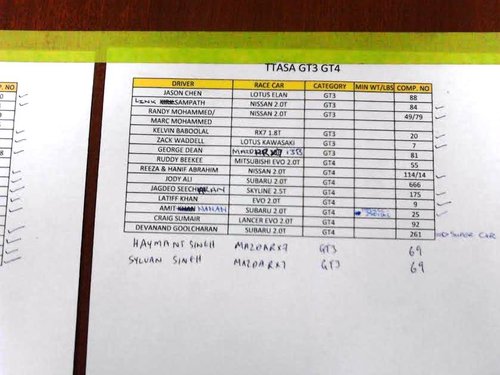 TTASA GT3 GT4
P. NO DRIVER RACE CAR CATEGORY MIN WT/LBS COMP. NO
JASON CHEN LOTUS ELAN GT3 88
LINK SAMPATH NISSAN 2.0T GT3 84
RANDY MOHAMMED/ NISSAN 2.0T GT3 49/79
MARC MOHAMMED
KELVIN BABOOLAL RX7 1.8T GT3 20
ZACK WADDELL LOTUS KAWASAKI GT3 7
GEORGE DEAN GT3 81
RUDDY BEEKEE MITSUBISHI EVO 2.0T GT4 55
REEZA & HANIF ABRAHIM NISSAN 2.0T GT4 114/14
JODY ALI SUBARU 2.0T GT4 666
JAGDEO SEECHARAN SKYLINE 2.5T GT4 175
LATIFF KHAN EVO 2.0T GT4 9
AMIT NANAN SUBARU 2.0T GT4 25
CRAIG SUMAIR LANCER EVO 2.0T GT4 92
DEVANAND GOOLCHARAN SUBARU 2.0T GT4 261 SUPER CAR
HAYMANT SINGH MAZDA RX7 GT3 69
SYLVAN SINGH MAZDA RX7 GT3 69